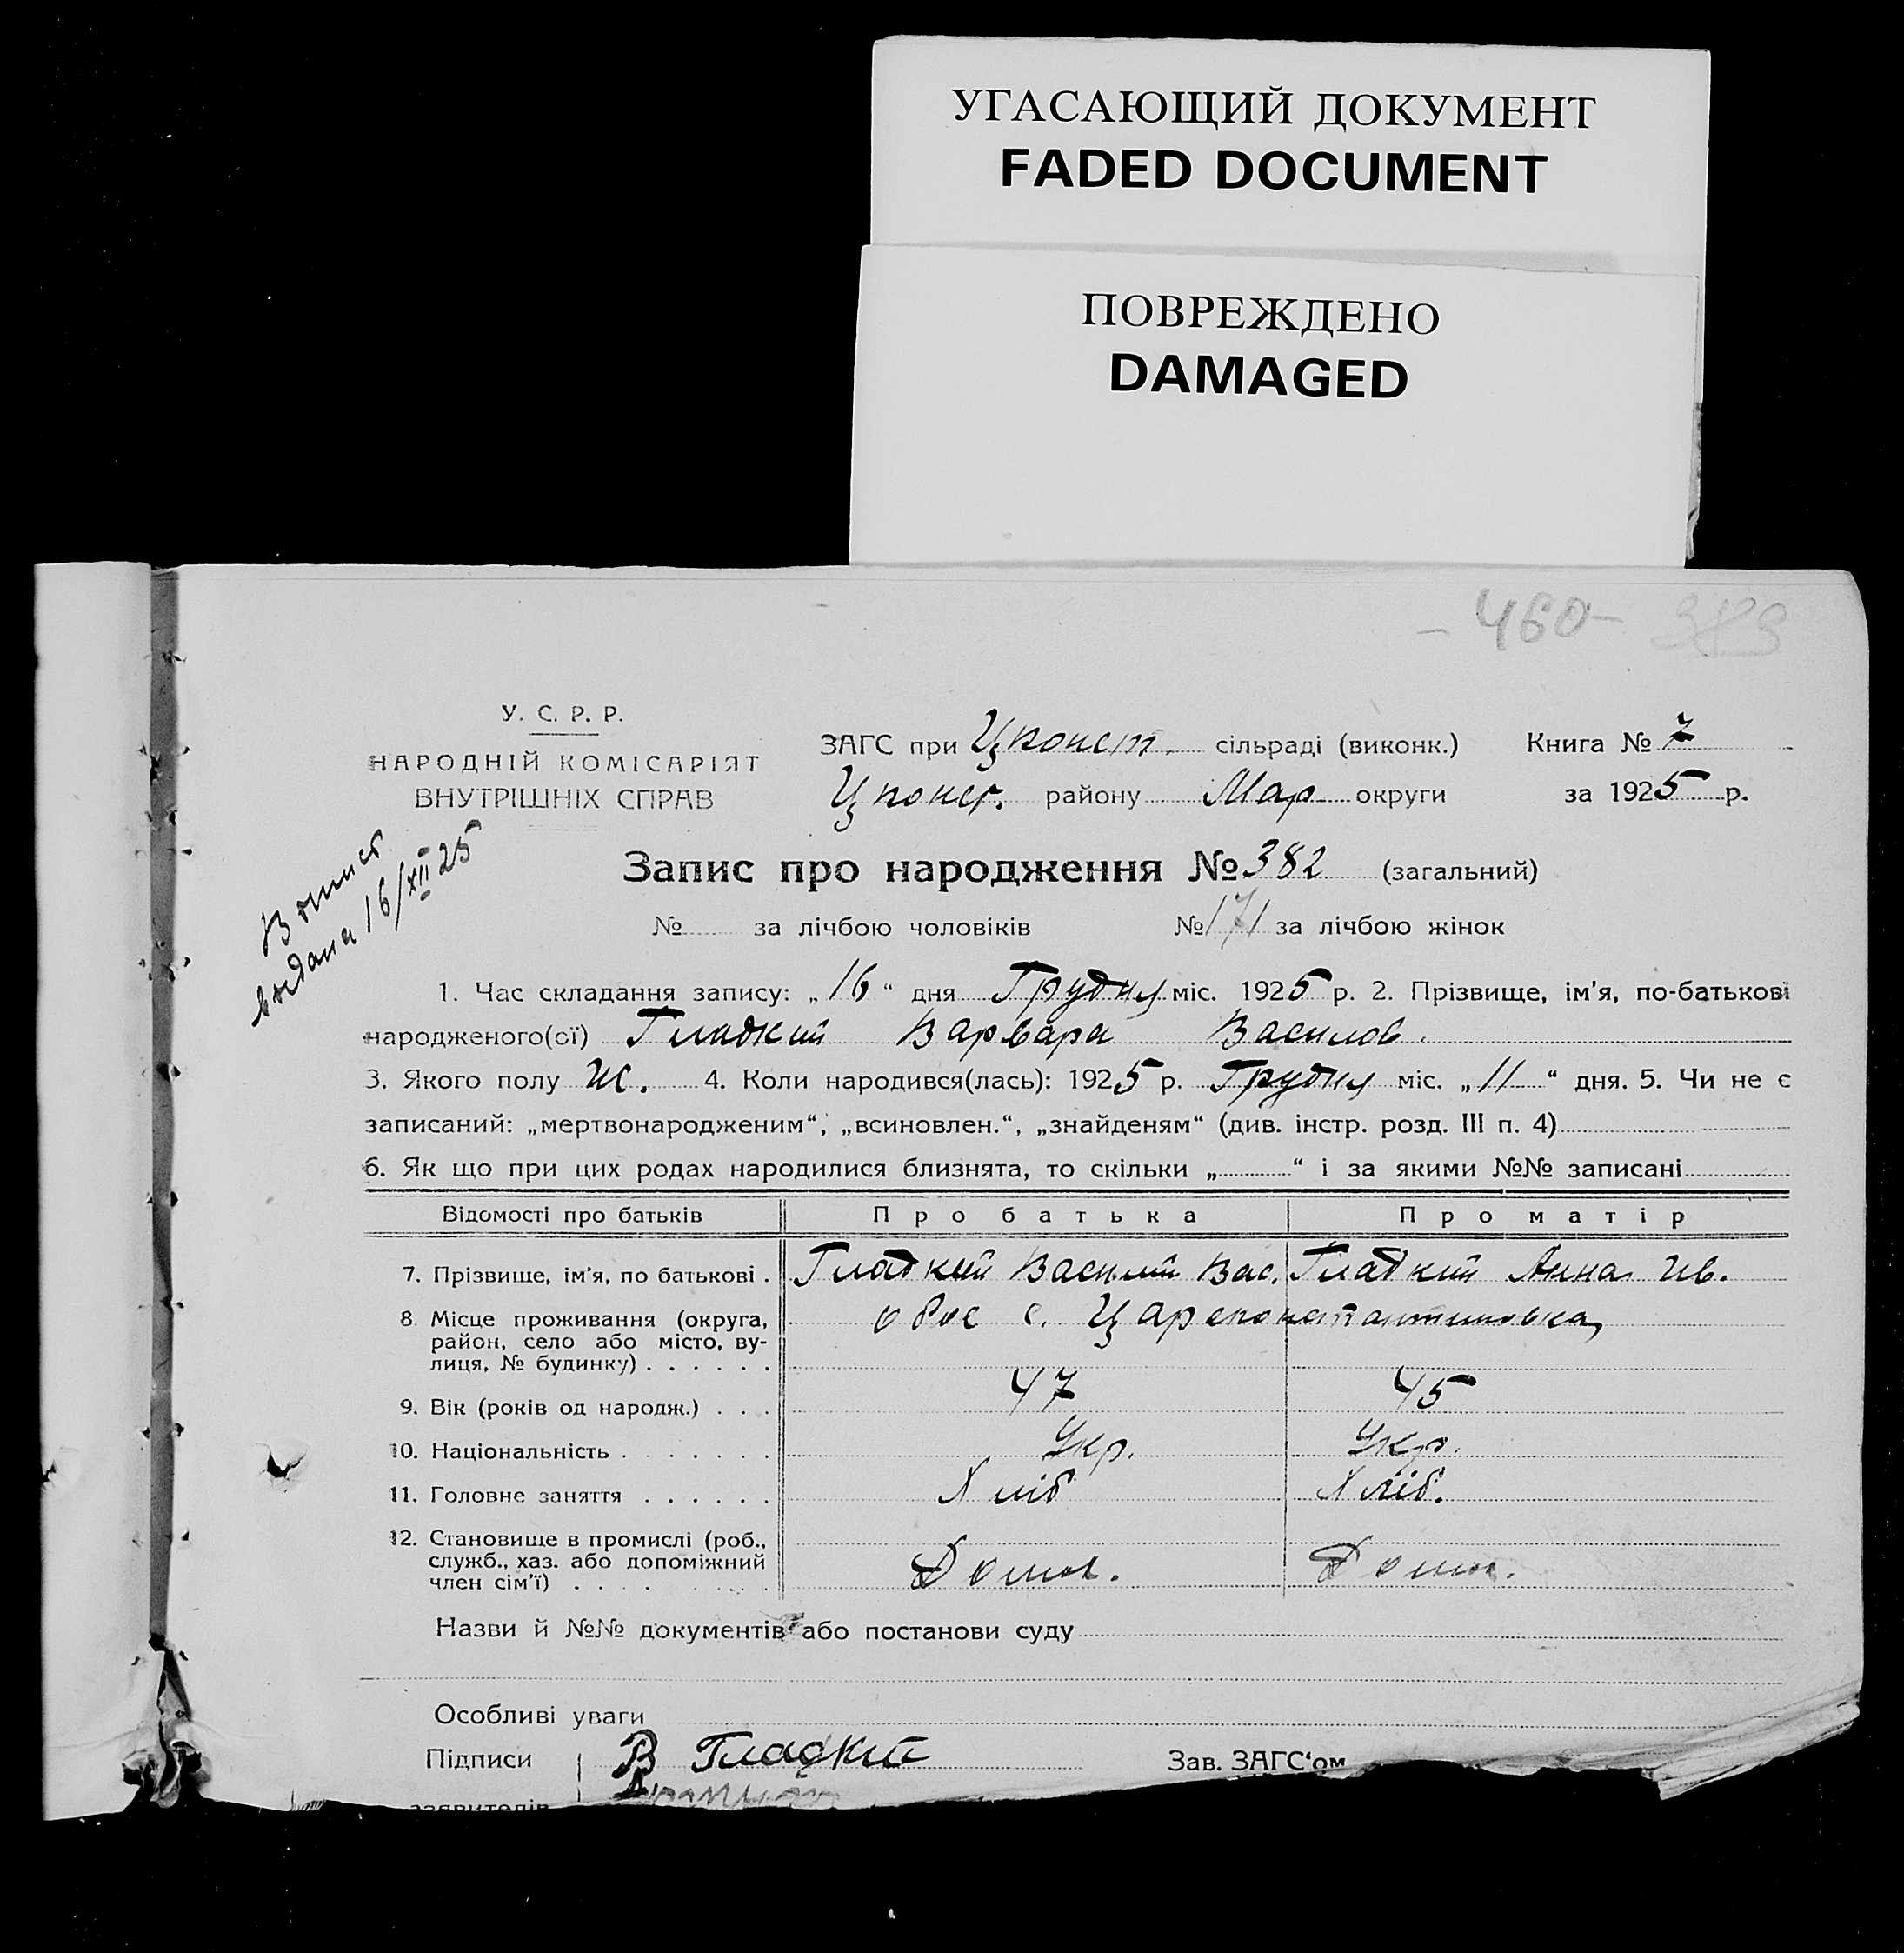 УГАСАЮЩИЙ ДОКУМЕНТ
FADED DOCUMENT
ПОВРЕЖДЕНО
DAMAGED
- 460 -
У. С. Р. Р.
НАРОДНІЙ КОМІСАРІЯТ
ВНУТРІШНІХ СПРАВ
ЗАГС при Цконст. сільраді (виконк.) Книга № 7
Цконст. району Мар округи за 1925 р.
Випис
видана 16/XII 25
Запис про народження № 382 (загальний)
№ за лічбою чоловіків № 171 за лічбою жінок
1. Час складання запису: „16“ дня Грудня міс. 1925 р. 2. Прізвище, ім'я, по-батькові
народженого(ої) Гладкий Варвара Василов.
3. Якого полу Ж. 4. Коли народився(лась): 1925 р. Грудня міс. „11“ дня. 5. Чи не є
записаний: „мертвонародженим“, „всиновлен.“, „знайденям“ (див. інстр. розд. III п. 4)
6. Як що при цих родах народилися близнята, то скільки „ “ і за якими №№ записані
Відомості про батьків Про батька Про матір
7. Прізвище, ім'я, по батькові . Гладкий Василий Вас. Гладкий Анна Ив.
8. Місце проживання (округа, обоє с. Цареконстантиновка
район, село або місто, ву-
лиця, № будинку) . . . . . .
9. Вік (років од народж.) . . . 47 45
10. Національність . . . . . . . Укр. Укр.
11. Головне заняття . . . . . . Хліб Хліб.
12. Становище в промислі (роб.,
служб., хаз. або допоміжний
член сім'ї) . . . . . . . .
Назви й №№ документів або постанови суду
Особливі уваги
Підписи В Гладкий Зав. ЗАГС'ом
заявителів